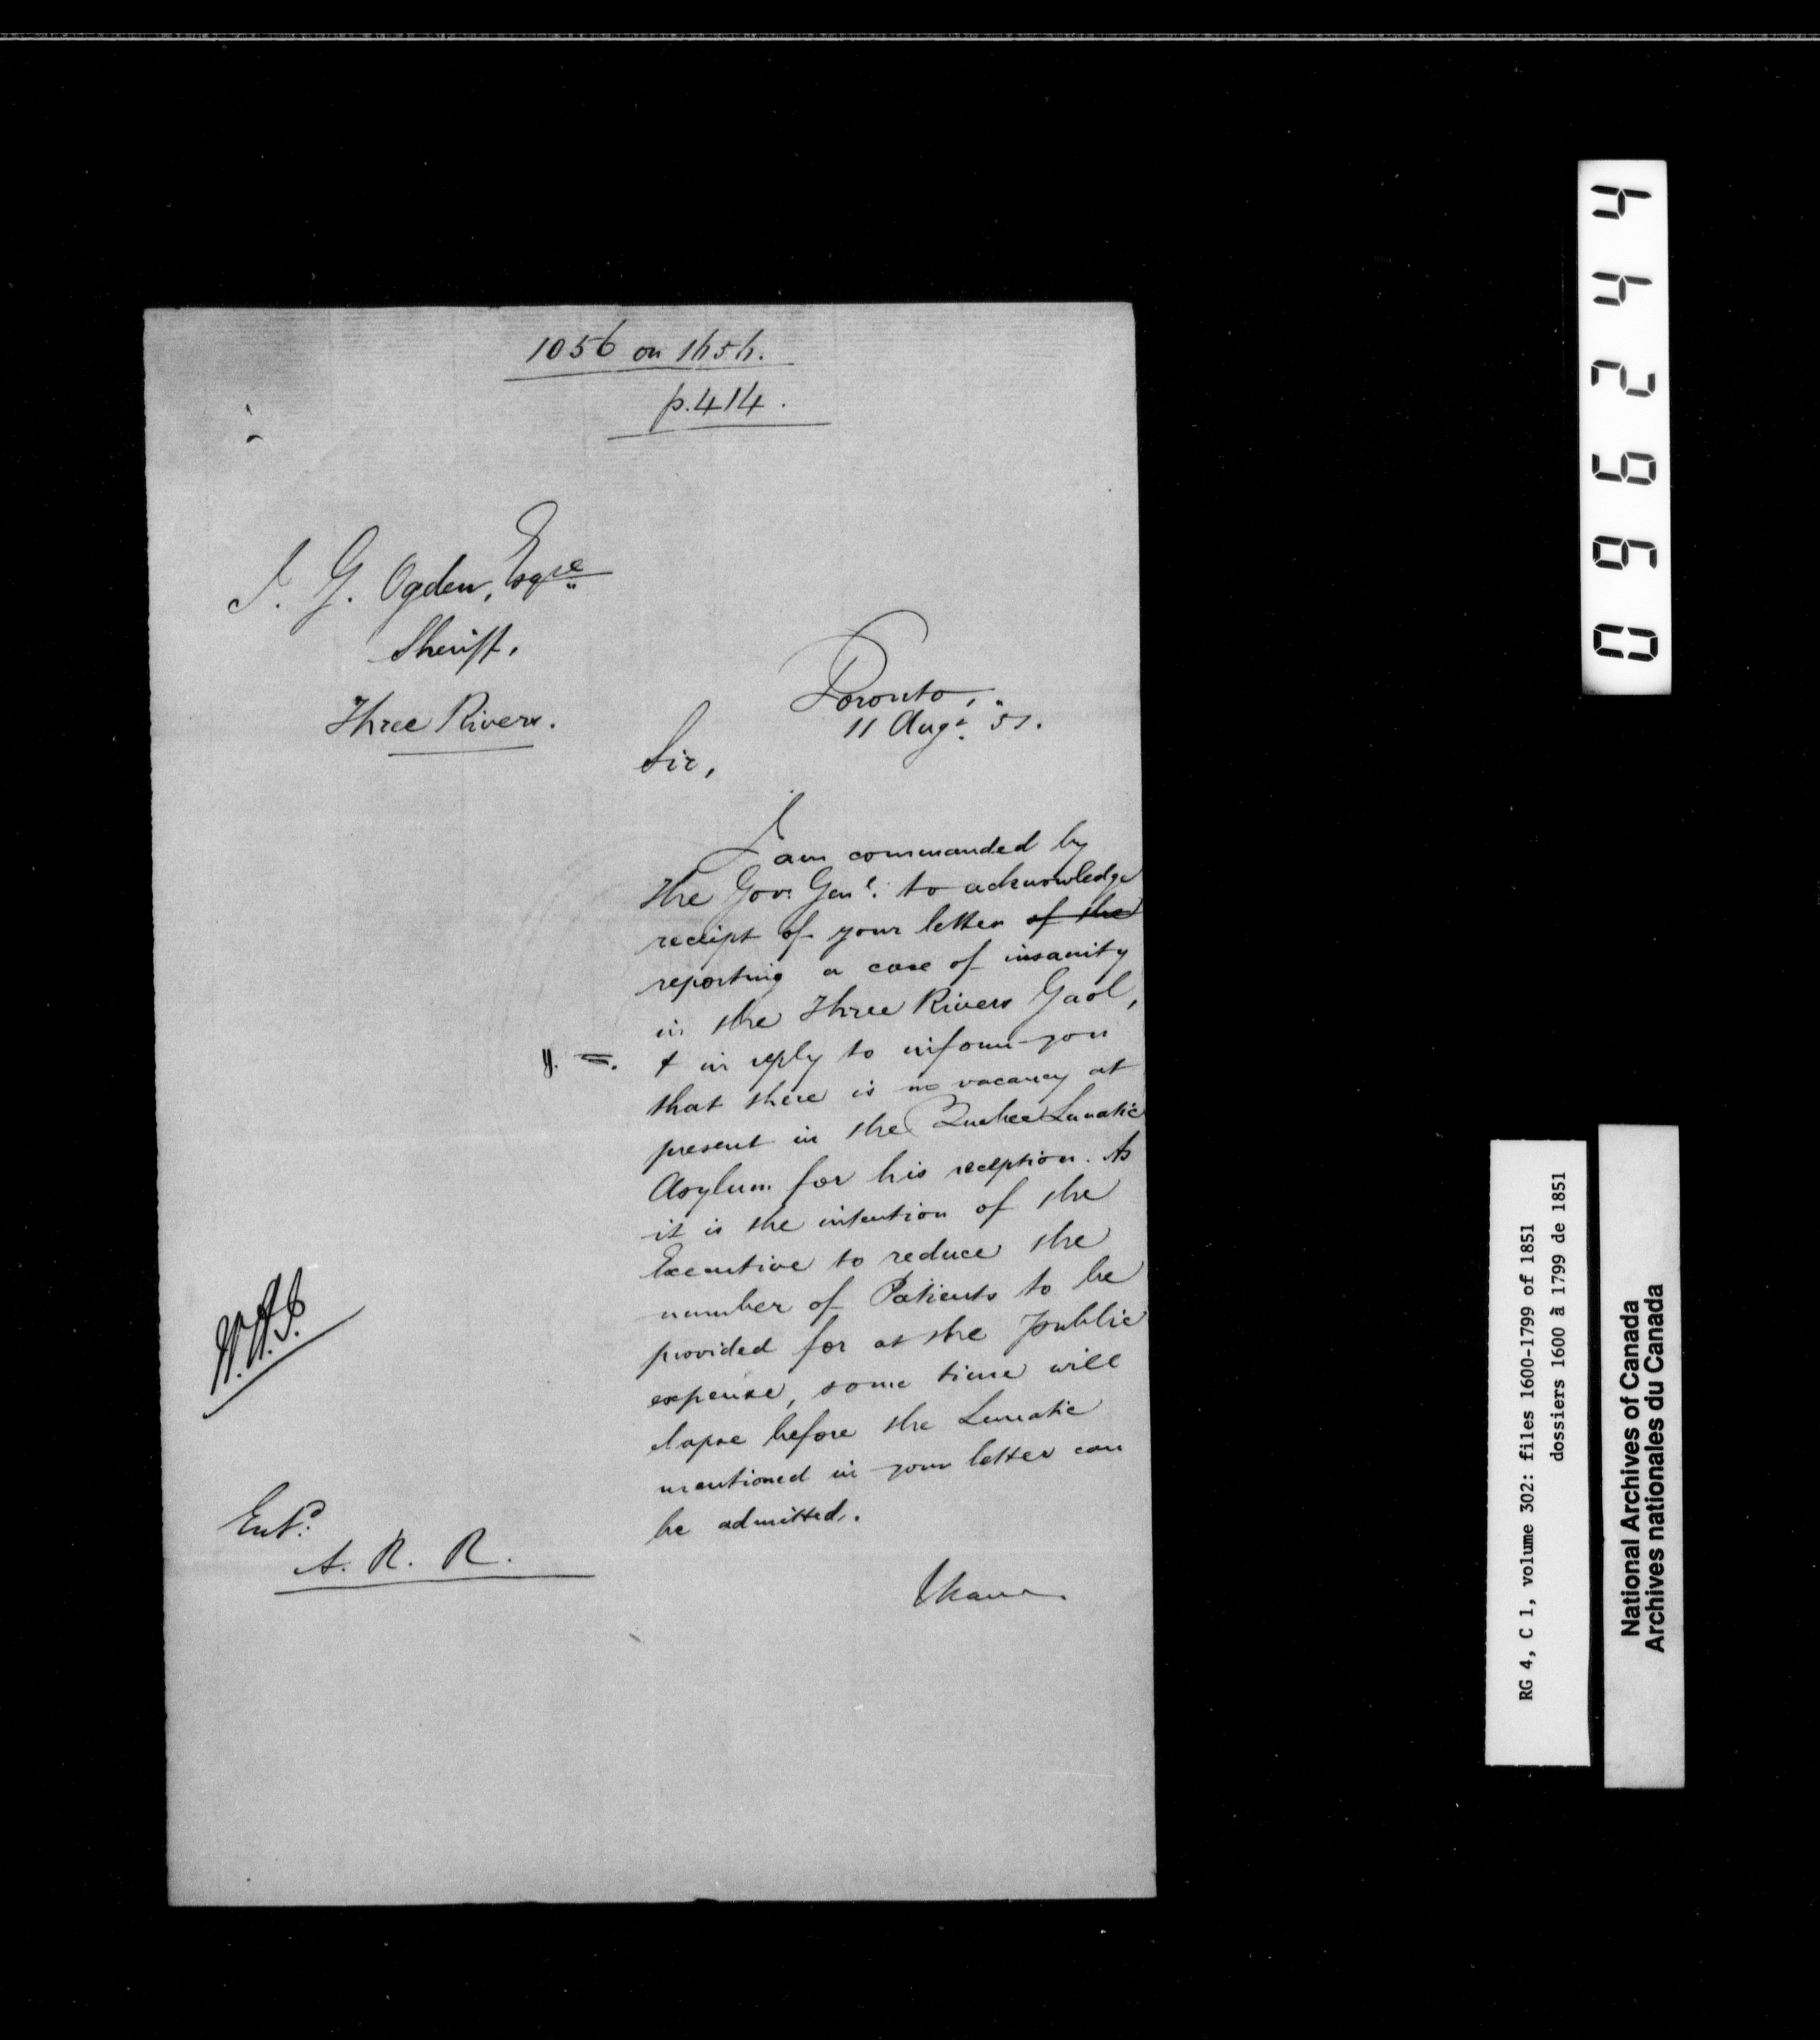 1056 on 1656.
p. 414.
I. G. Ogden, Esqre
Sheriff,
Three Rivers.
Toronto,
11 Augt. 51.
Sir,
I am commanded by
the Gov. Genl. to acknowledge
receipt of your letter of the
reporting a case of insanity
in the Three Rivers Gaol,
& in reply to inform you
that there is no vacancy at
present in the Quebec Lunatic
Asylum for his reception. As
it is the intention of the
Executive to reduce the
number of Patients to be
provided for at the public
expense, some time will
elapse before the Lunatic
mentioned in your letter can
be admitted.
I have
Entd.
A. R. R.
096244
RG 4, C 1, volume 302: files 1600-1799 of 1851
dossiers 1600 à 1799 de 1851
National Archives of Canada
Archives nationales du Canada